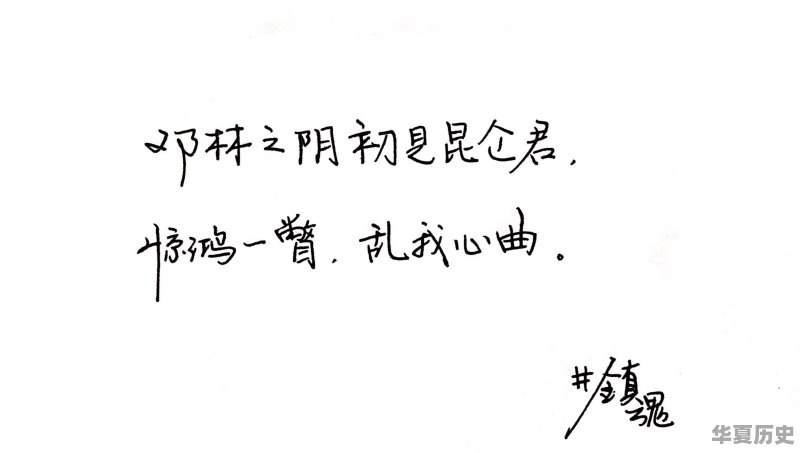 邓林之阴初见昆仑君,
惊鸿一瞥,乱我心曲。
#鎮魂
华夏历史